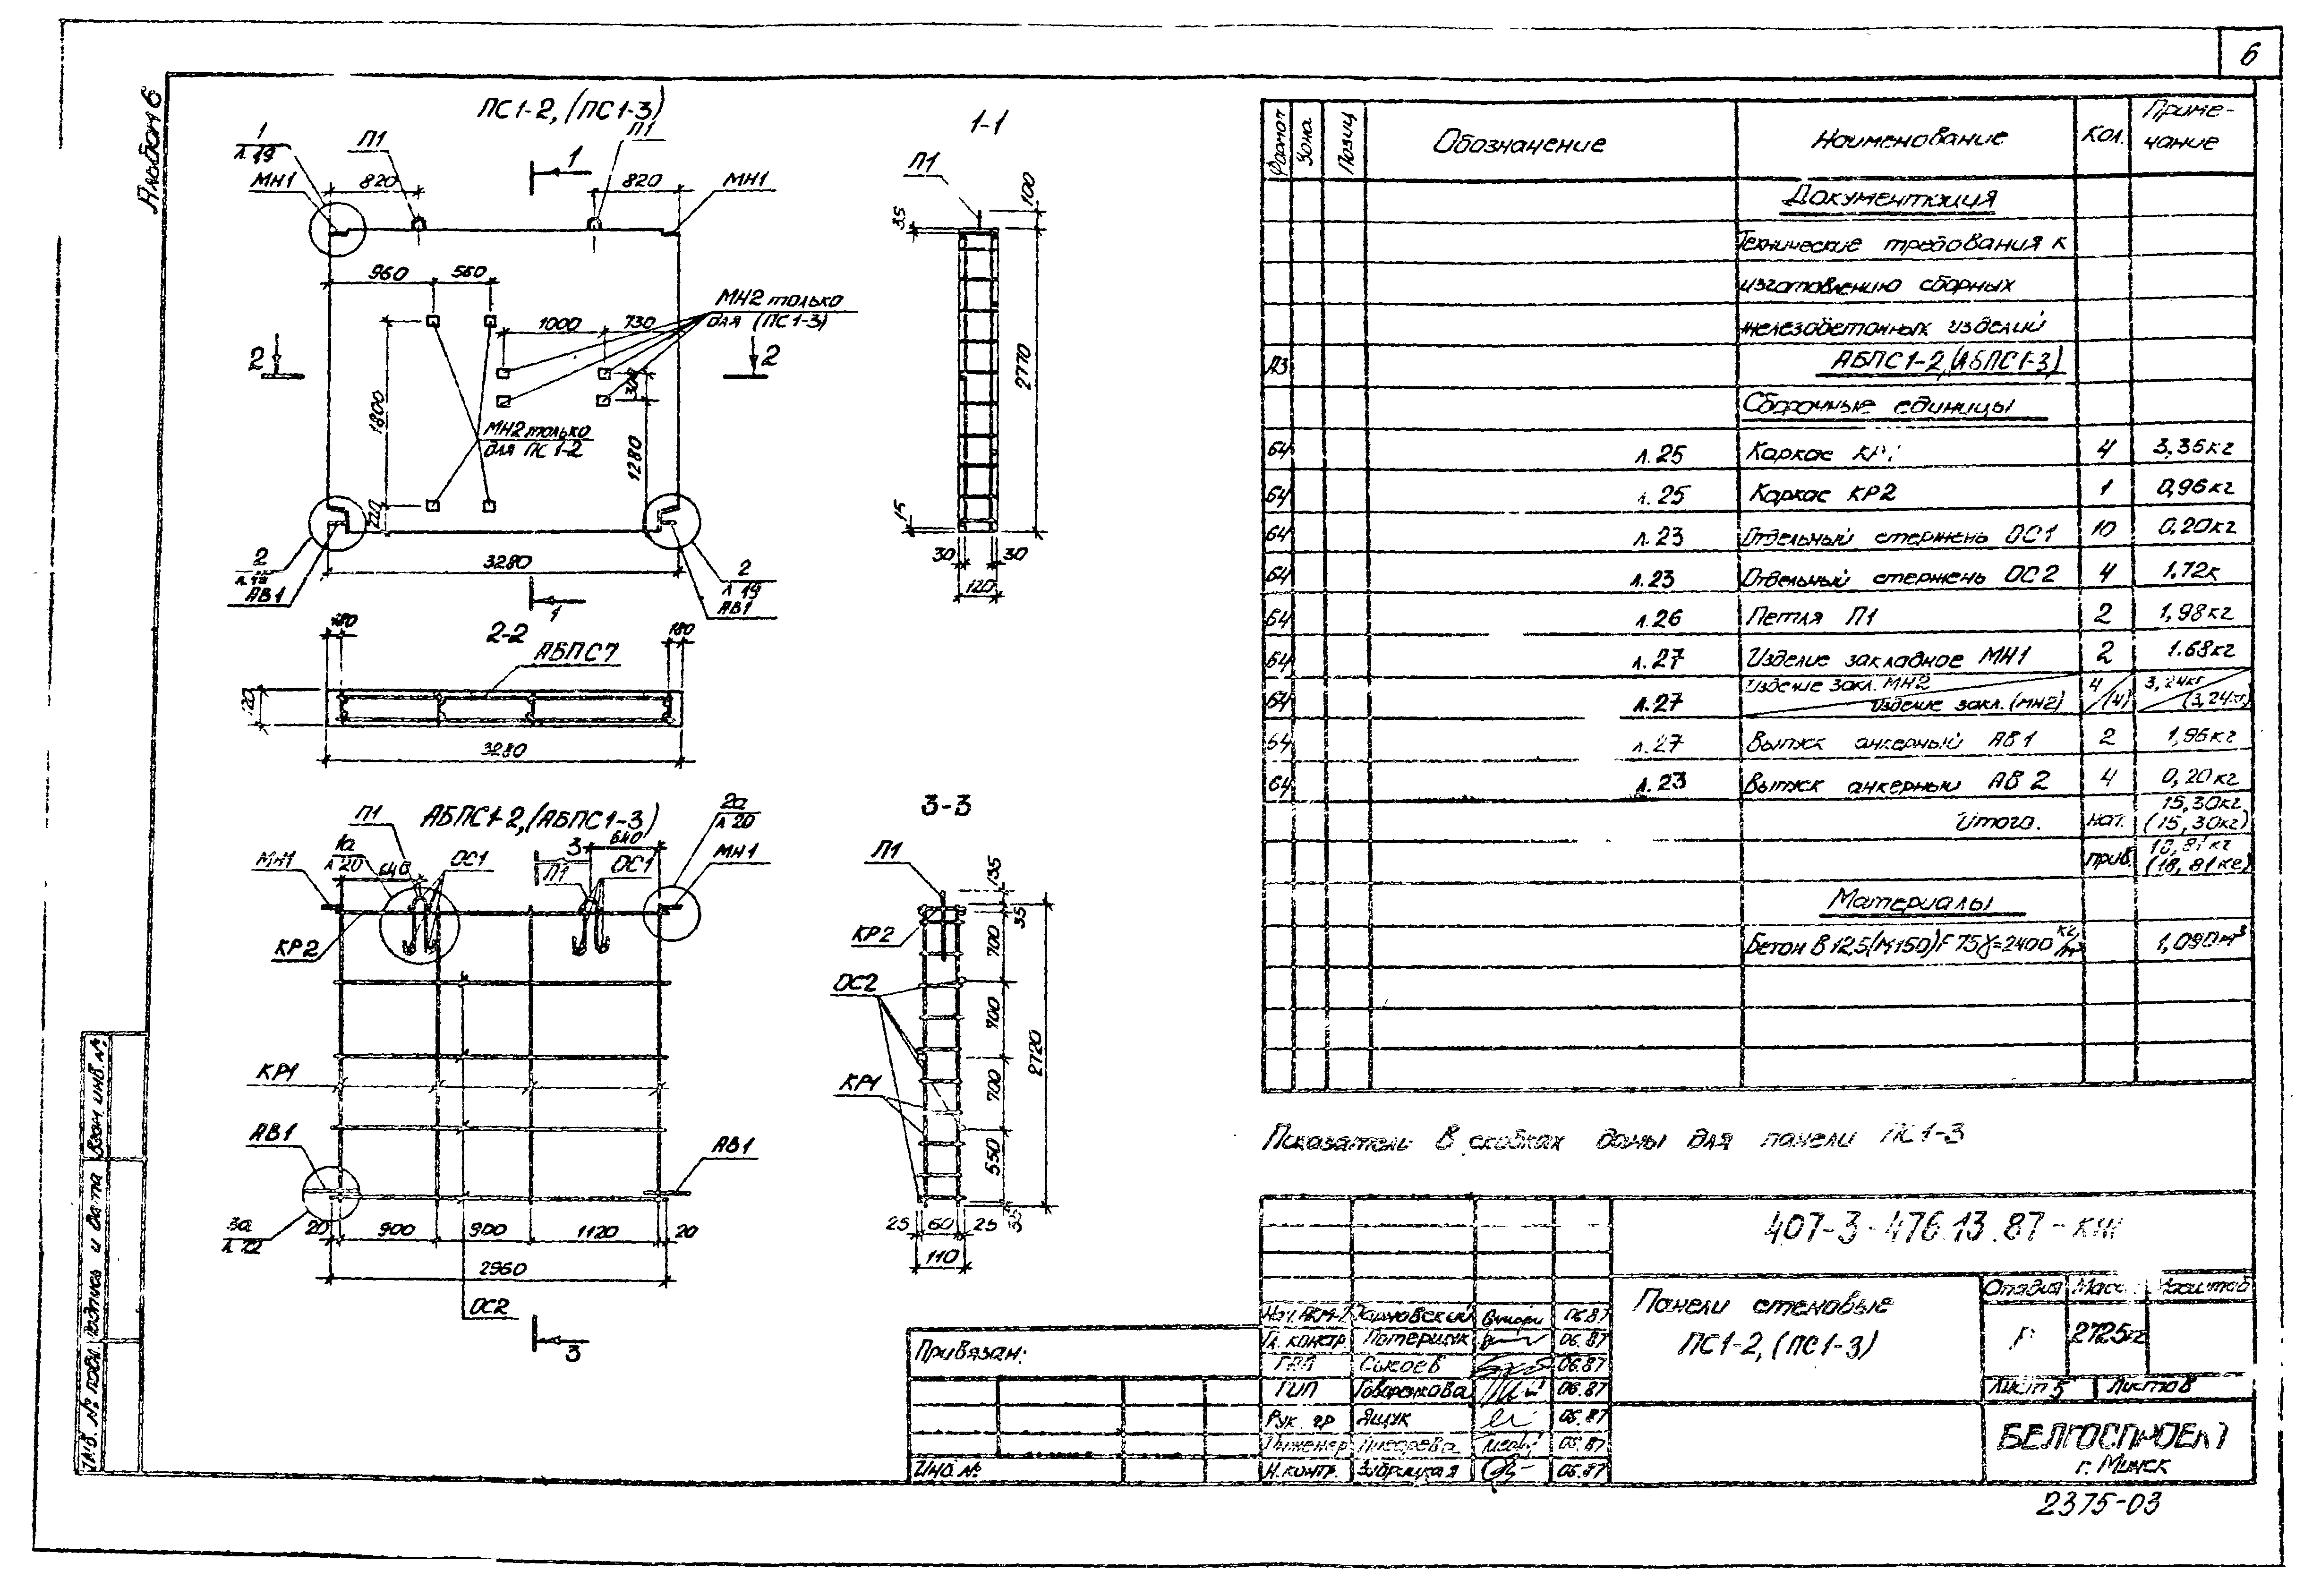 6
Альбом 6
ПС1-2, (ПС1-3)
1
л.19
П1
П1
1
МН1
820
820
МН1
960
560
МН2 только
для (ПС1-3)
1000
730
2
2
1800
МН2 только
для ПС1-2
1280
220
2
АВ1
3280
2
л 19
АВ1
1
1-1
П1
100
35
2770
15
30
30
120
2-2
180
180
АБПС1
120
3280
АБПС1-2, (АБПС1-3)
П1
1а
л 20
МН1
640
ОС1
3
640
П1
ОС1
2а
л 20
МН1
КР2
КР1
АВ1
АВ1
3а
20
900
900
1120
20
2960
ОС2
3
3-3
П1
135
35
КР2
700
ОС2
700
2720
КР1
700
550
35
25
60
25
110
Формат
Зона
Позиц
Обозначение
Наименование
Кол.
Приме-
чание
Документация
Технические требования к
изготовлению сборных
железобетонных изделий
А3
АБПС1-2, (АБПС1-3)
Сборочные единицы
Б4 л.25 Каркас 4 3,35кг
Б4 л.25 Каркас КР2 1 0,96кг
Б4 л.23 Отдельный стержень ОС1 10 0,20кг
Б4 л.23 Отдельный стержень ОС2 4 1,72к
Б4 л.26 Петля П1 2 1,98кг
Б4 л.27 Изделие закладное МН1 2 1.68кг
Изделие закл. МН2 4 3,24кг
Б4 л.27 Изделие закл. (МН2) (4) (3,24кг)
Б4 л.27 Выпуск анкерный АВ1 2 1,96кг
Б4 л.23 Выпуск анкерный АВ2 4 0,20кг
15,30кг
Итого. нат. (15,30кг)
18,81кг
прив (18,81кг)
Материалы
Бетон В12,5(М150)F75 γ=2400 кг/м³ 1,090м³
в скобках даны для панели ПС1-3
407-3-476.13.87-КЖ
Панели стеновые
ПС1-2, (ПС1-3)
Стадия Масса Масштаб
Р 2725кг
Лист 5
Листов
БЕЛГОСПРОЕКТ
г. Минск
2375-03
06.87
Гл. констр 06.87
ГАП 06.87
ГИП 06.87
Рук. гр Ящук 06.87
Инженер 06.87
Н.контр. 06.87
Привязан:
Инв.№
Взам.инв.№
Подпись и дата
Инв. № подл.